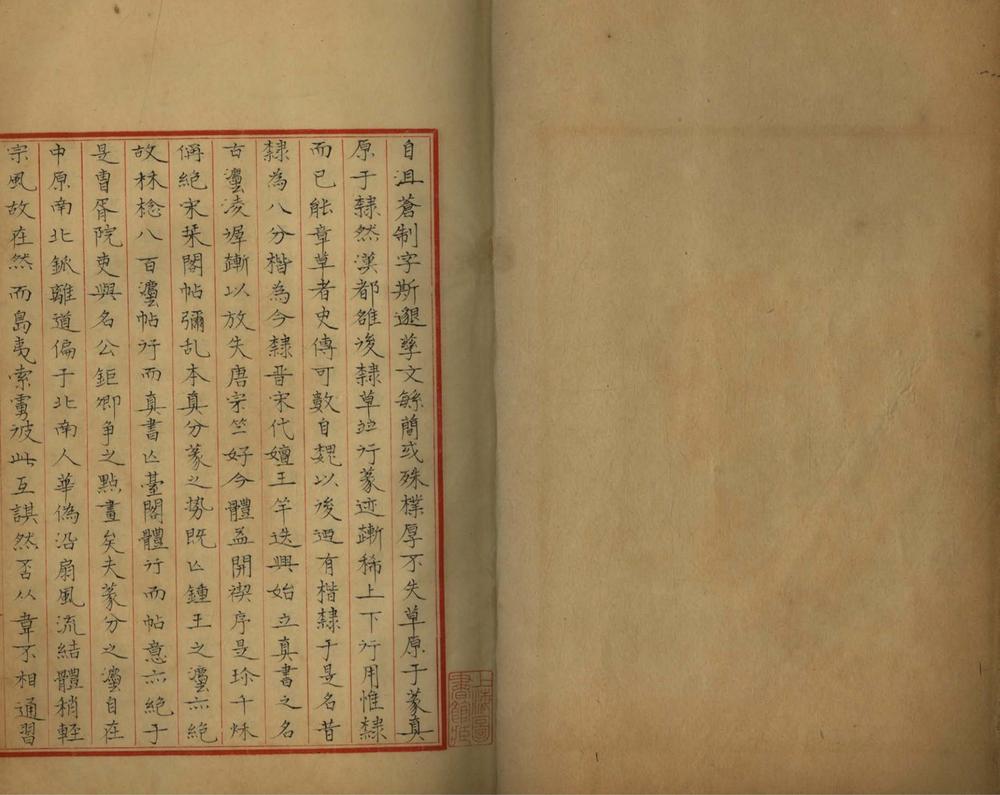 自沮蒼制字斯邈孳文緐蕳或殊樸厚不失草原于篆真
原于隸然漢都雒後隸草竝行篆迹蹔稀上下行用惟隸
而已能章草者史傳可數自魏以後迺有楷隸于是名昔
隸為八分楷為今隸晉宋代嬗王羊迭興始立真書之名
古灋凌遟蹔以放失唐宗竺好今體益開禊序是珍千秌
偁絕宋棊閣帖彌乱本真分篆之勢既亾鍾王之灋亦絕
故林棯八百灋帖行而真書亾臺閣體行而帖意亦絕于
是曹胥院吏與名公鉅卿爭之點畫矣夫篆分之灋自在
中原南北鈋離道偏于北南人華偽沿扇風流結體稍輕
宗風故在然而島夷索虜彼此互諆然否从韋不相通習
上海圖書館藏